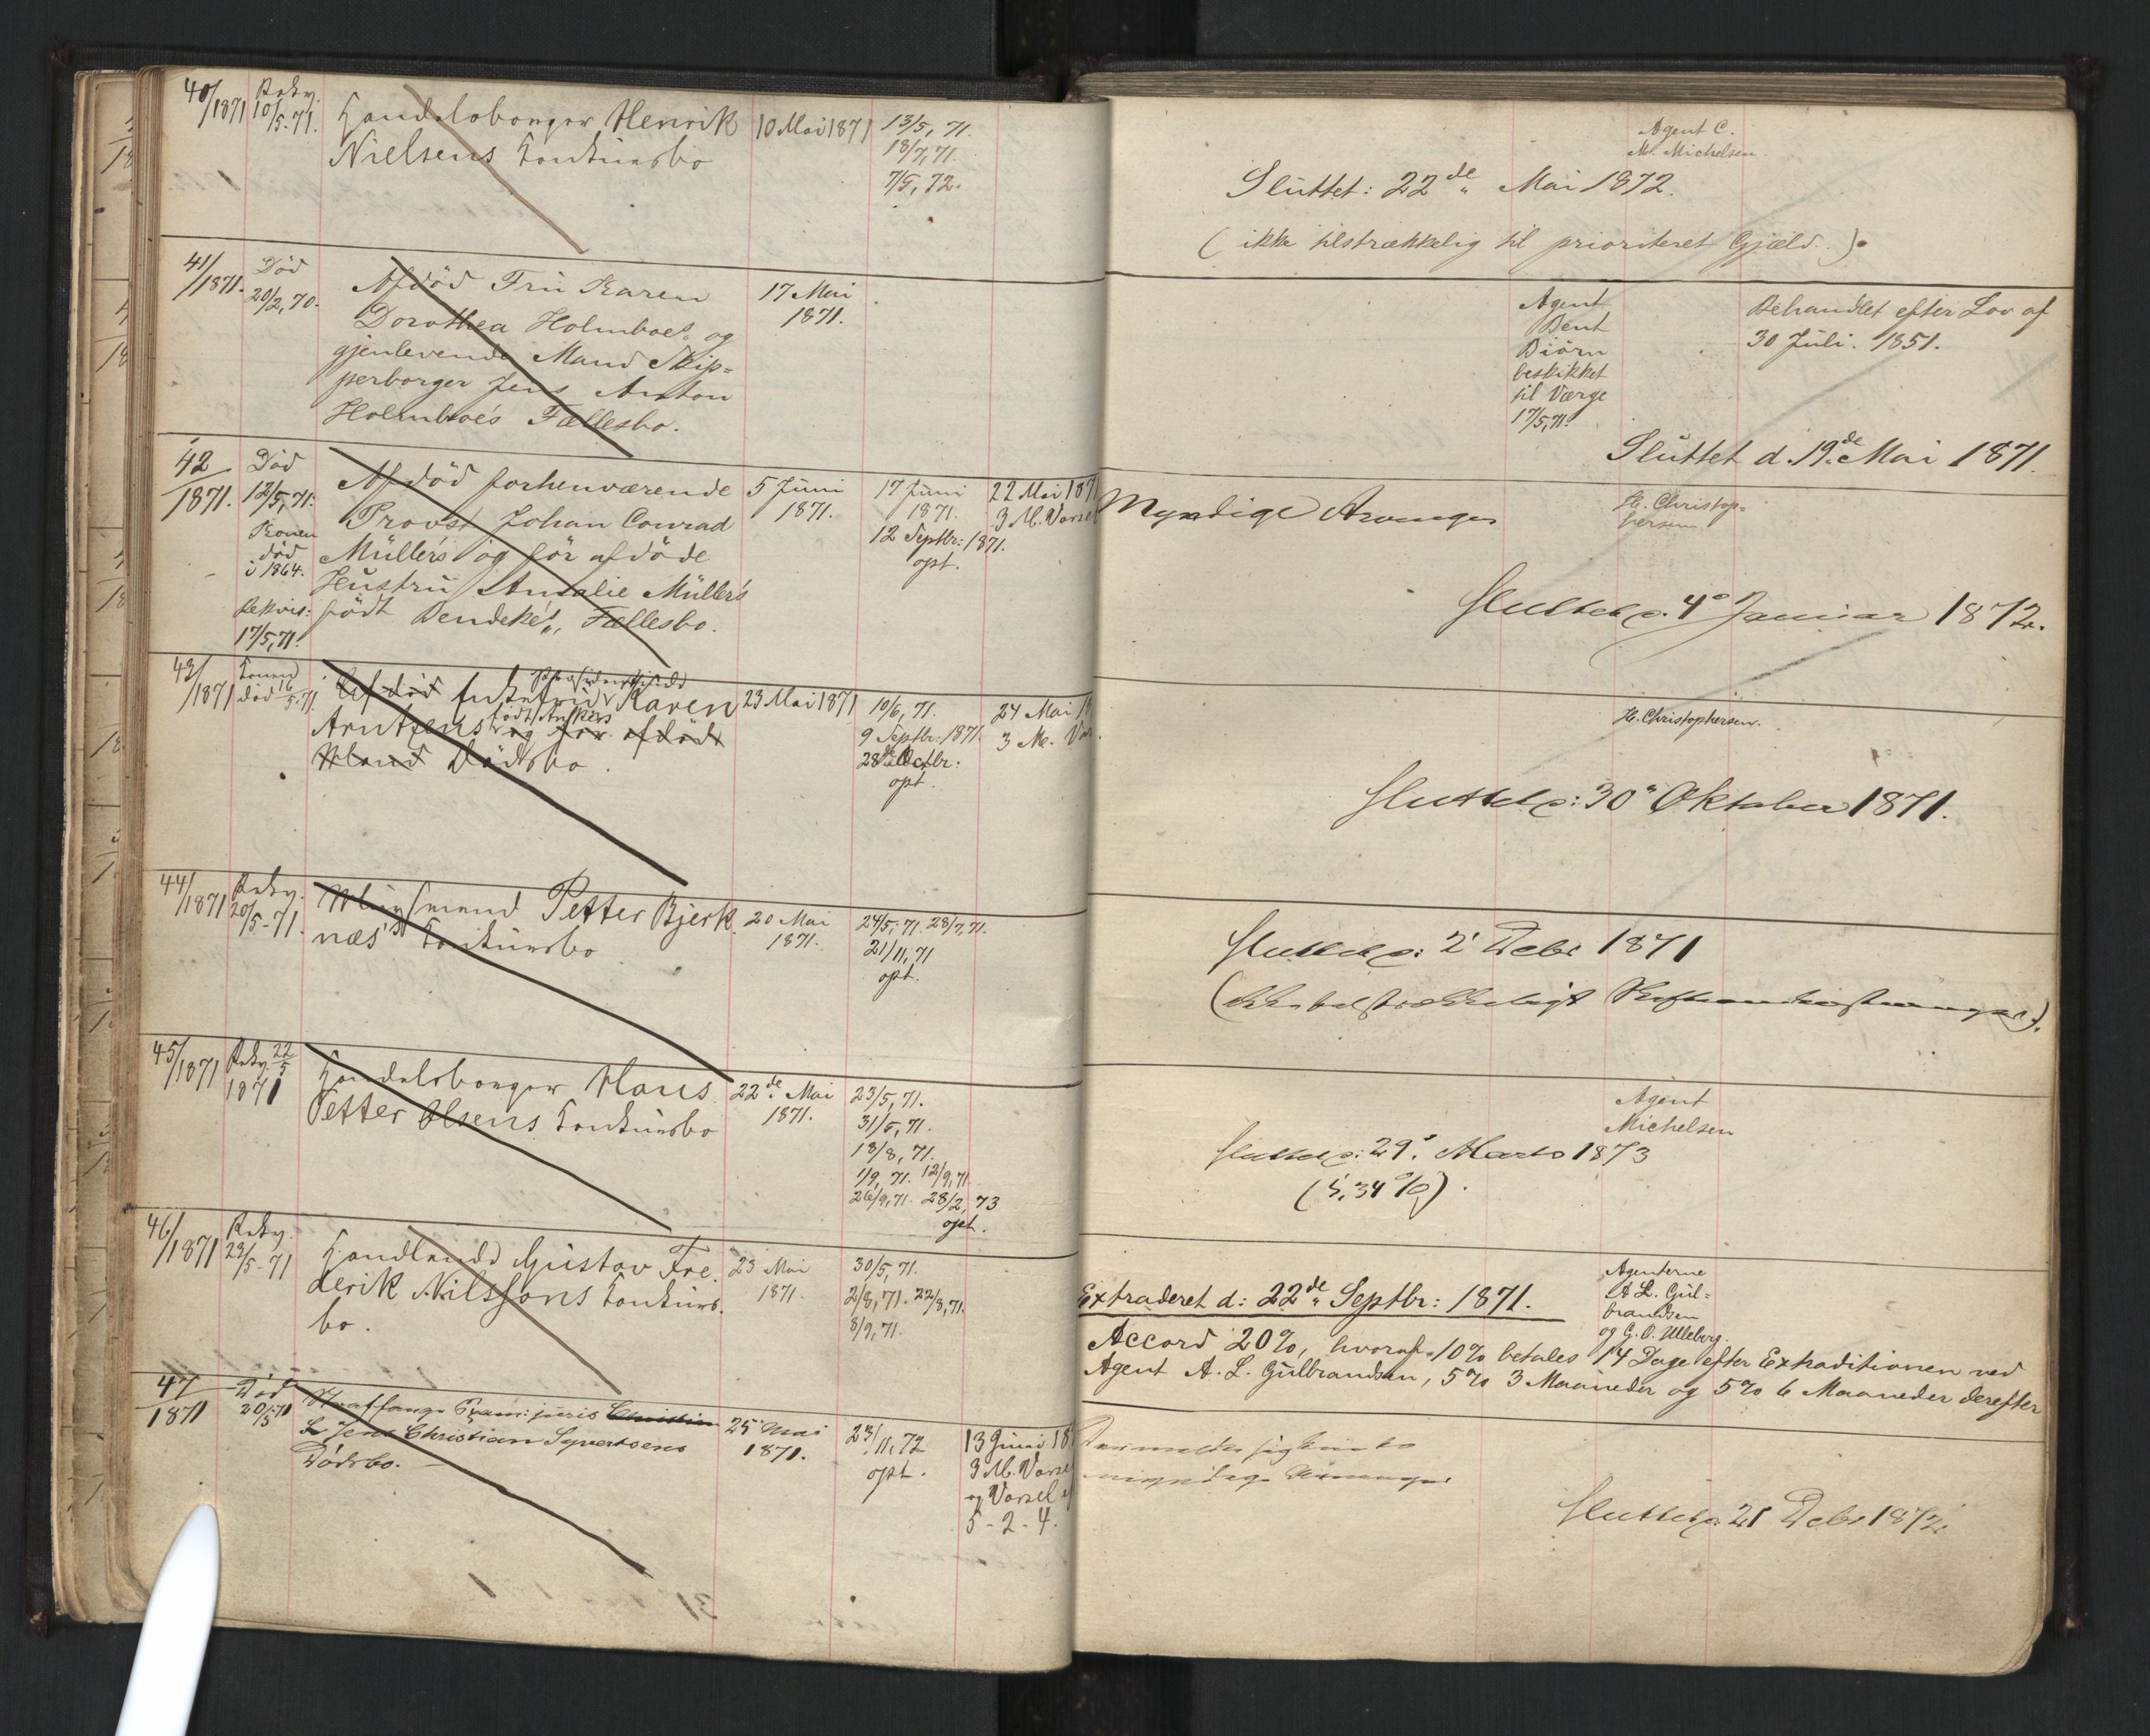 40/1871
Rekv.
10/5-71.
Handelsborger Henrik
Nielsens Konkursbo
10 Mai 1871
13/5, 71.
18/7, 71.
7/5, 72.
Agent C.
M. Michelsen
Sluttet: 22de Mai 1872.
(ikke tilstrækkelig til prioriteret Gjæld.).
41/1871.
Död
20/2, 70.
Afdöd Fru Karen
Dorothea Holmboes og
gjenlevende Mand Skip=
perborger Jens Anton
Holmboe's Fællesbo.
17 Mai
1871.
Agent
Bent
Biörn
beskikket
til Værge
17/5, 71.
Behandlet efter Lov af
30 Juli. 1851.
Sluttet d. 19de Mai 1871.
42
1871.
Död
12/5, 71.
Konen
död
i 1864.
Rekvis:
17/5, 71.
Afdöd forhenværende
Provst Johan Conrad
Müllers og för afdöde
Hustru Amalie Müller's
födt Bendeke's, Fællesbo.
5 Juni
1871.
17 Juni
1871.
12 Septbr: 1871.
opt.
22 Mai 187
3 M. Varsel
Myndige Arvinger
H. Christop=
hersen
Sluttet d. 4de Januar 1872.
43/1871
Konen
död 16/5-71.
Afdöd Enkefru Karen
Arntzens født Ankers og før afdöde
Mand Dödsbo.
23 Mai 1871
10/6, 71.
9 Septbr: 1871
28de Octbr:
opt.
24 Mai 18
3 M. Var
H. Christophersen.
Sluttet d: 30e Oktober 1871.
44/1871
Rekv.
20/5-71.
Petter Bjerk
næs's Konkursbo
20 Mai
1871.
24/5, 71. 28/7, 71.
21/11, 71
opt.
Sluttet d: 2 Debr 1871
45/1871
Rekv. 22/5
1871
Handelsborger Hans
Petter Olsens Konkursbo
22de Mai
1871.
23/5, 71.
31/5, 71.
18/8, 71.
1/9, 71. 12/9, 71
26/9, 71. 28/2, 73
opt.
Agent
Michelsen
Sluttet d: 29. Marts 1873
(5,34 %).
46/1871
Rekv.
23/5-71
Handlende Gustav Fre
derik Nilssons Konkurs.
bo.
23 Mai
1871.
30/5, 71.
2/8, 71. 22/8, 71.
8/9, 71.
Agenterne
A L. Gul=
brandsen
og G. O. Ulleberg.
Extraderet d: 22de Septbr: 1871.
Accord 20%, hvoraf 10% betales 14 Dage efter Extraditionen ved
Agent A. L. Gulbrandsen, 5% 3 Maaneder og 5% 6 Maaneder derefter
47
1871
Död
20/5 71
Straffange Exam: juris Christian
Jens Christian Syvertsens
Dödsbo.
25 Mai
1871.
23/11, 72
opt.
13 Juni 18
3 M. Varsel
og Varsel ef
5-2-4.
myndige Arvinger
Sluttet d: 21 Debr 1872.